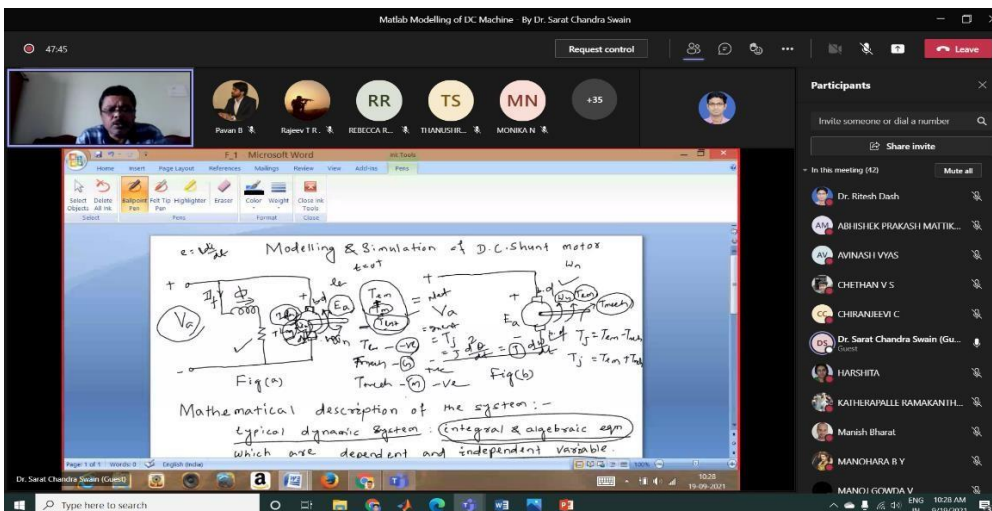 Matlab Modelling of DC Machine - By Dr. Sarat Chandra Swain
47:45
Request control
Leave
RR
TS
MN
+35
Pavan B
Rajeev T R .
REBECCA R...
THANUSH R...
MONIKA N
Participants
Invite someone or dial a number
Share invite
In this meeting (42)
Mute all
Dr. Ritesh Dash
AM
ABHISHEK PRAKASH MATTIK...
AV
AVINASH VYAS
CHETHAN V S
CC
CHIRANJEEVI C
DS
Dr. Sarat Chandra Swain (Gu...
Guest
HARSHITA
KATHERAPALLE RAMAKANTH...
Manish Bharat
MANOHARA B Y
MANOJ GOWDA V
F_1 Microsoft Word
Ink Tools
Home Insert Page Layout References Mailings Review View Add-Ins Pens
Select Objects
Delete All Ink
Ballpoint Pen
Felt Tip Pen
Highlighter
Eraser
Color
Weight
Close Ink Tools
Select
Pens
Format
Close
Modelling & Simulation of D.C. Shunt motor
Va
If
Φ
Ea
Tem
= Net
Va
Fig(a)
Ea
Fig(b)
Tj = Tem + Tmech
Mathematical description of the system :-
typical dynamic system : integral & algebraic eqn
which are dependent and independent variable.
Page: 1 of 1 Words: 0 English (India)
100%
Dr. Sarat Chandra Swain (Guest)
10:28
19-09-2021
Type here to search
ENG
IN
10:28 AM
9/19/2021